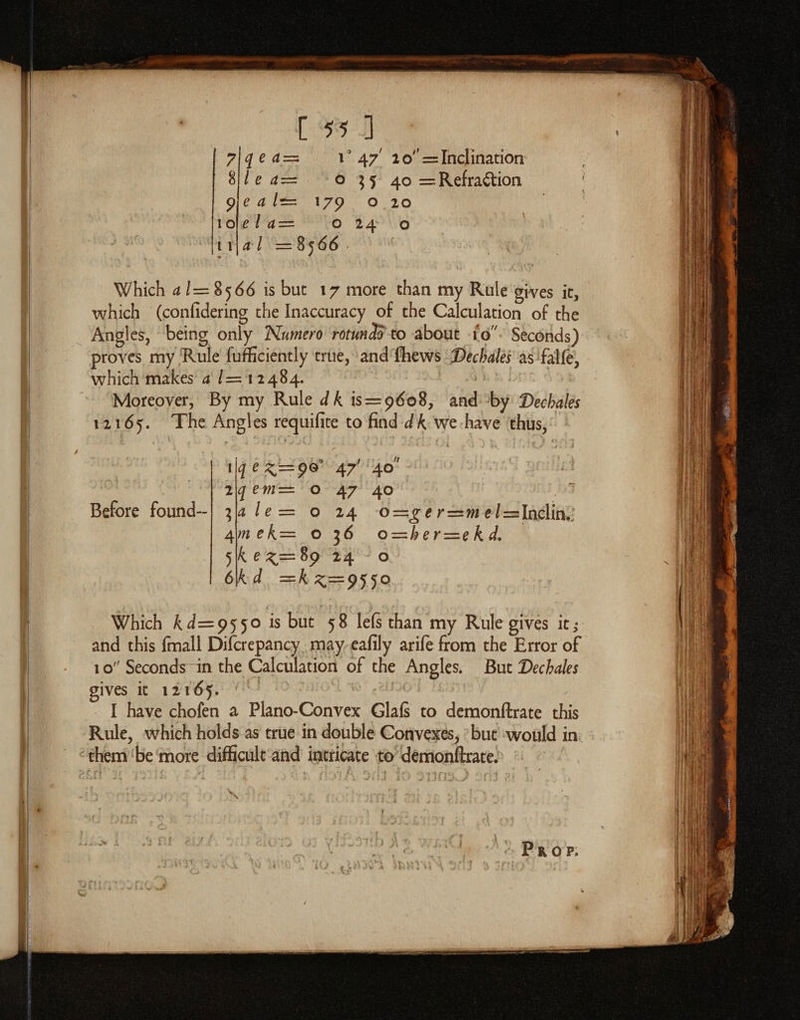 [ 55 ]
7|q e a= 1° 47′ 20″ = Inclination
8|l e a= 0 35 40 = Refraction
9|e a l= 179 0 20
10|e l a= 0 24 0
11|a l = 8566.
Which a l = 8566 is but 17 more than my Rule gives it,
which (conſidering the Inaccuracy of the Calculation of the
Angles, being only Numero rotundo to about 10″ Seconds)
proves my Rule ſufficiently true, and ſhews Dechales as falſe,
which makes a l = 12484.
Moreover, By my Rule d k is = 9608, and by Dechales
12165. The Angles requiſite to find d k we have thus,
1|q e z = 90° 47′ 40″
2|q e m = 0 47 40
Before found--| 3|a l e = 0 24 0 = g e r = m e l = Inclin.
4|m e k = 0 36 0 = h e r = e k d.
5|k e z = 89 24 0
6|k d = k z = 9550
Which k d = 9550 is but 58 leſs than my Rule gives it;
and this ſmall Diſcrepancy may eaſily ariſe from the Error of
10″ Seconds in the Calculation of the Angles. But Dechales
gives it 12165.
I have choſen a Plano-Convex Glaſs to demonſtrate this
Rule, which holds as true in double Convexes, but would in
them be more difficult and intricate to demonſtrate.
PROP.